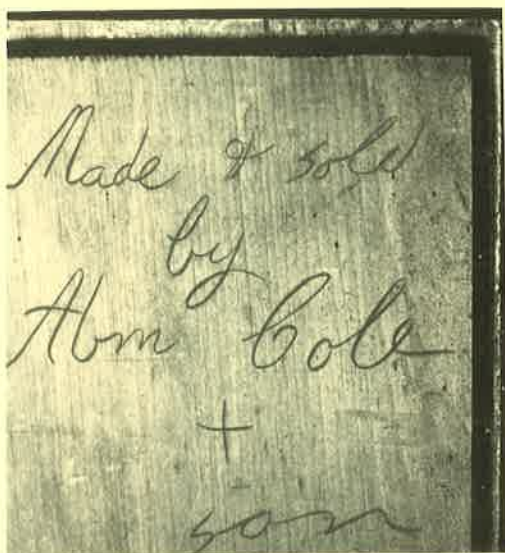 Made & sold
by
Abm Cole
+
son